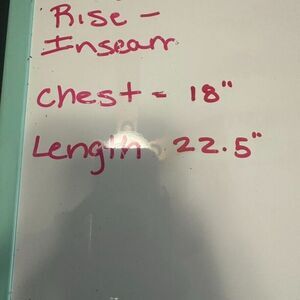 Rise -
Inseam
Chest - 18"
Length - 22.5"